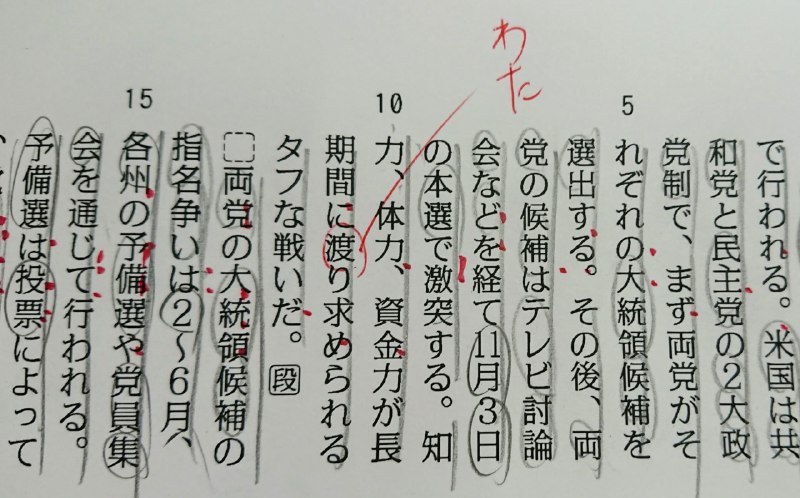 で行われる。米国は共
和党と民主党の2大政
党制で、まず両党がそ
れぞれの大統領候補を
選出する。その後、両
党の候補はテレビ討論
会などを経て11月3日
の本選で激突する。知
力、体力、資金力が長
期間に渡り求められる
タフな戦いだ。段
両党の大統領候補の
指名争いは2~6月、
各州の予備選や党員集
会を通じて行われる。
予備選は投票によって
5
10
15
わた